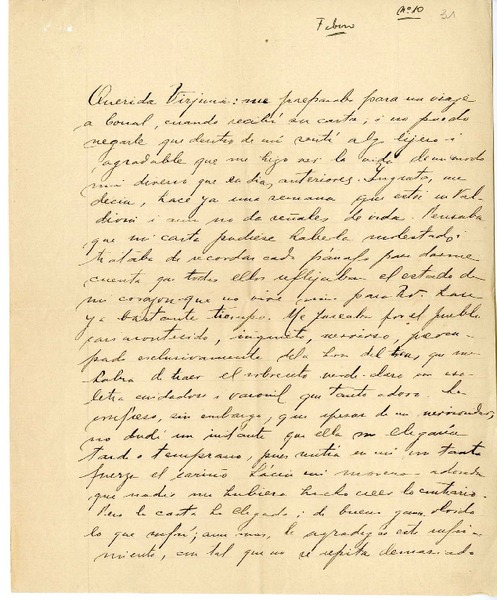 Nº 10 31
Febrero
Querida Virginia: me preparaba para un viaje
a Corral, cuando recibí su carta, i no puedo
negarle que dentro de mí sentí algo lijero i
agradable que me hizo ver la vida de un modo
mui diverso que en dias anteriores. Ingrata, me
decia, hace ya una semana que está en Val-
divia i aun no da señales de vida. Pensaba
que mi carta pudiese haberla molestado, i
trataba de recordar cada párrafo para darme
cuenta que todos ellos reflejaban el estado de
mi corazon que no vive sino para Ud. hace
ya bastante tiempo. Me paseaba por el pueblo
casi acontecido, inquieto, nervioso, preocu-
pado esclusivamente de la hora del tren, que me
habia de traer el sobrecito verde claro con esa
letra cuidadosa i varonil que tanto adoro. Le
confieso, sin embargo, que apesar de mi nerviosidad,
no dudé un instante que ella me llegaria
tarde o temprano, pues sentia en mí con tanta
fuerza el cariño hácia mi morena adorada
que nadie me hubiera hecho creer lo contrario.
Pero la carta ha llegado i de buena gana olvido
lo que sufrí; aun mas, le agradezco este sufri-
miento, con tal que no se repita demasiado